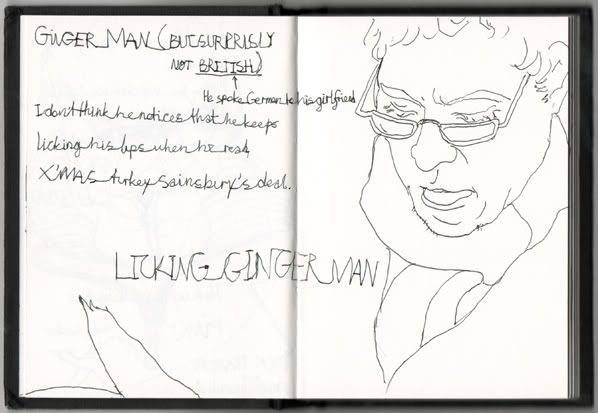 GINGER MAN (BUT SURPRISLY
NOT BRITISH)
He spoke German to his girlfriend
I don't think he notices that he keeps
licking his lips when he read
X'MAS turkey Sainsbury's deal.
LICKING GINGER MAN